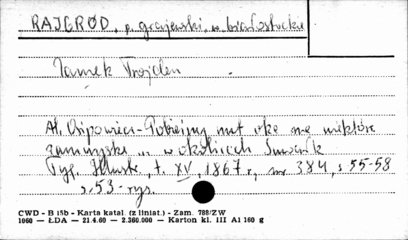 RAJGRÓD, p. grajewski, w. białostockie
Zamek Trojden
Al. Osipowicz - Pobieżny rzut oka na niektóre
zamczyska ... w okolicach Suwałk
Tyg. Illustr., t. XV, 1867 r., nr 384, s. 55-58
s. 53 - rys.
CWD - B 15b - Karta katal. (z liniat.) - Zam. 788/ZW
1060 — ŁDA — 21.4.60 — 2.360.000 — Karton kl. III A1 160 g